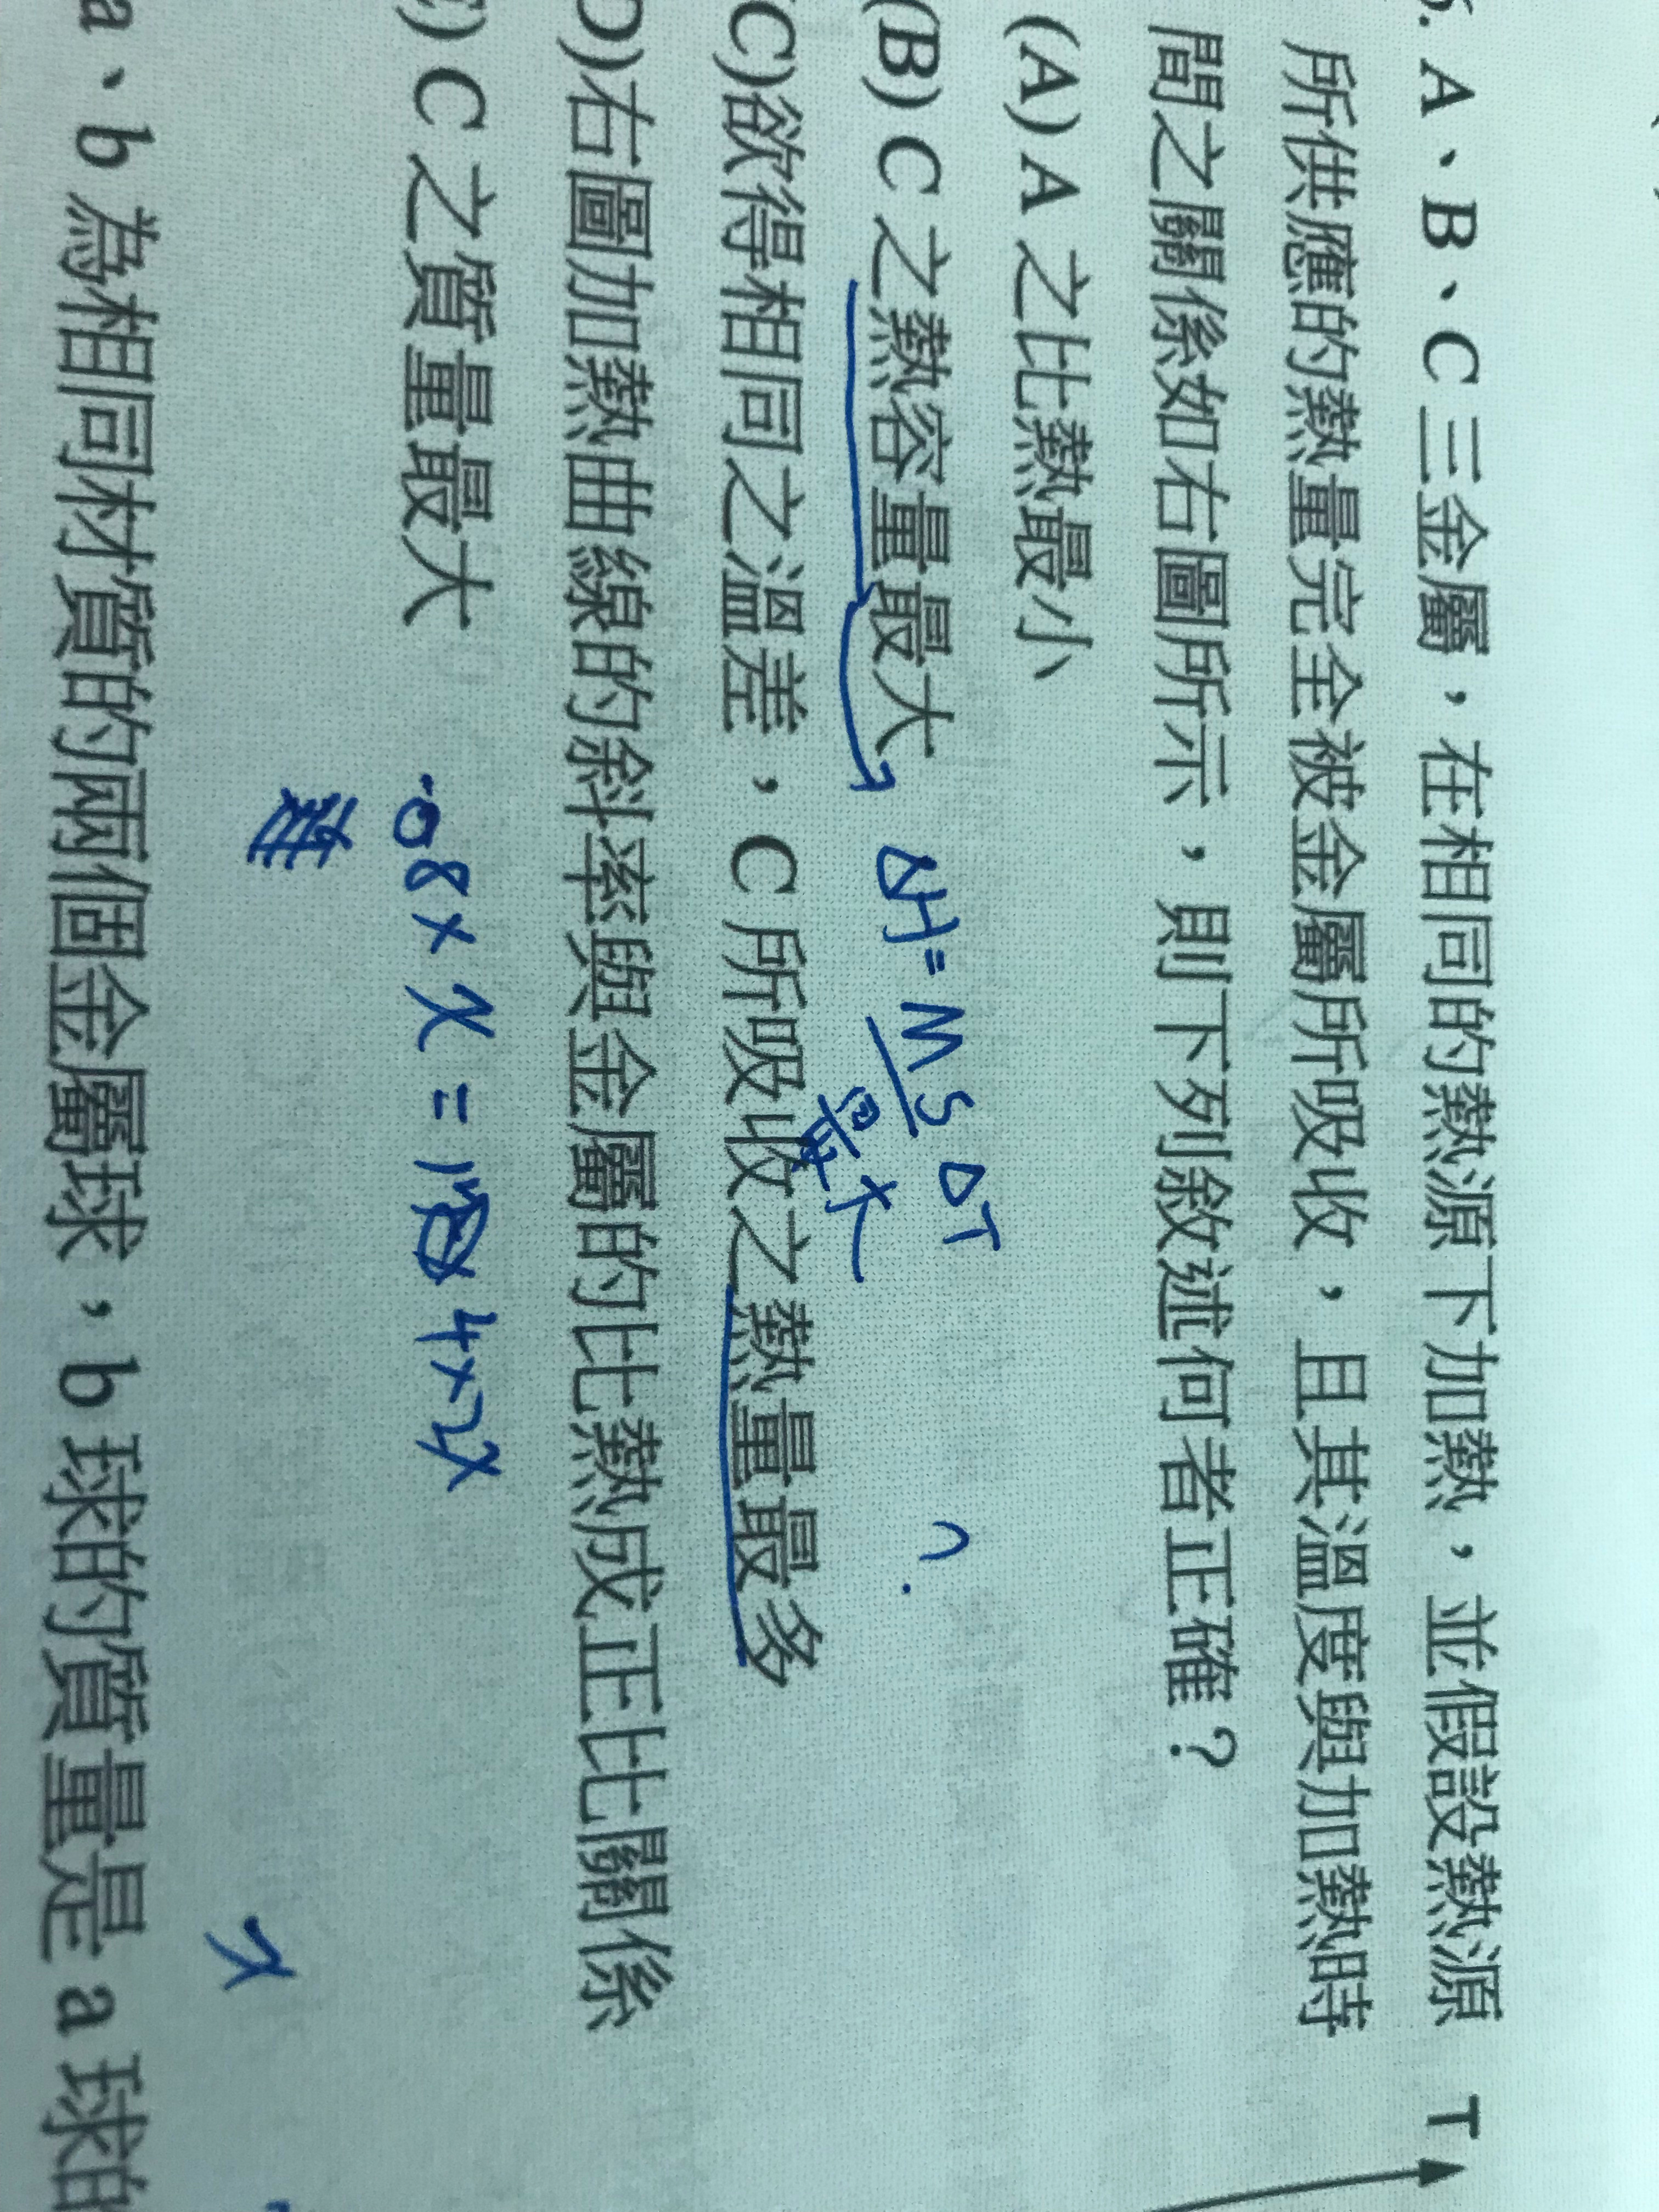 . A、B、C 三金屬，在相同的熱源下加熱，並假設熱源
所供應的熱量完全被金屬所吸收，且其溫度與加熱時
間之關係如右圖所示，則下列敘述何者正確？
(A) A 之比熱最小
(B) C 之熱容量最大
ΔH = MSΔT
C)欲得相同之溫差，C 所吸收之熱量最多
D)右圖加熱曲線的斜率與金屬的比熱成正比關係
) C 之質量最大
a、b 為相同材質的兩個金屬球，b 球的質量是 a 球的
T